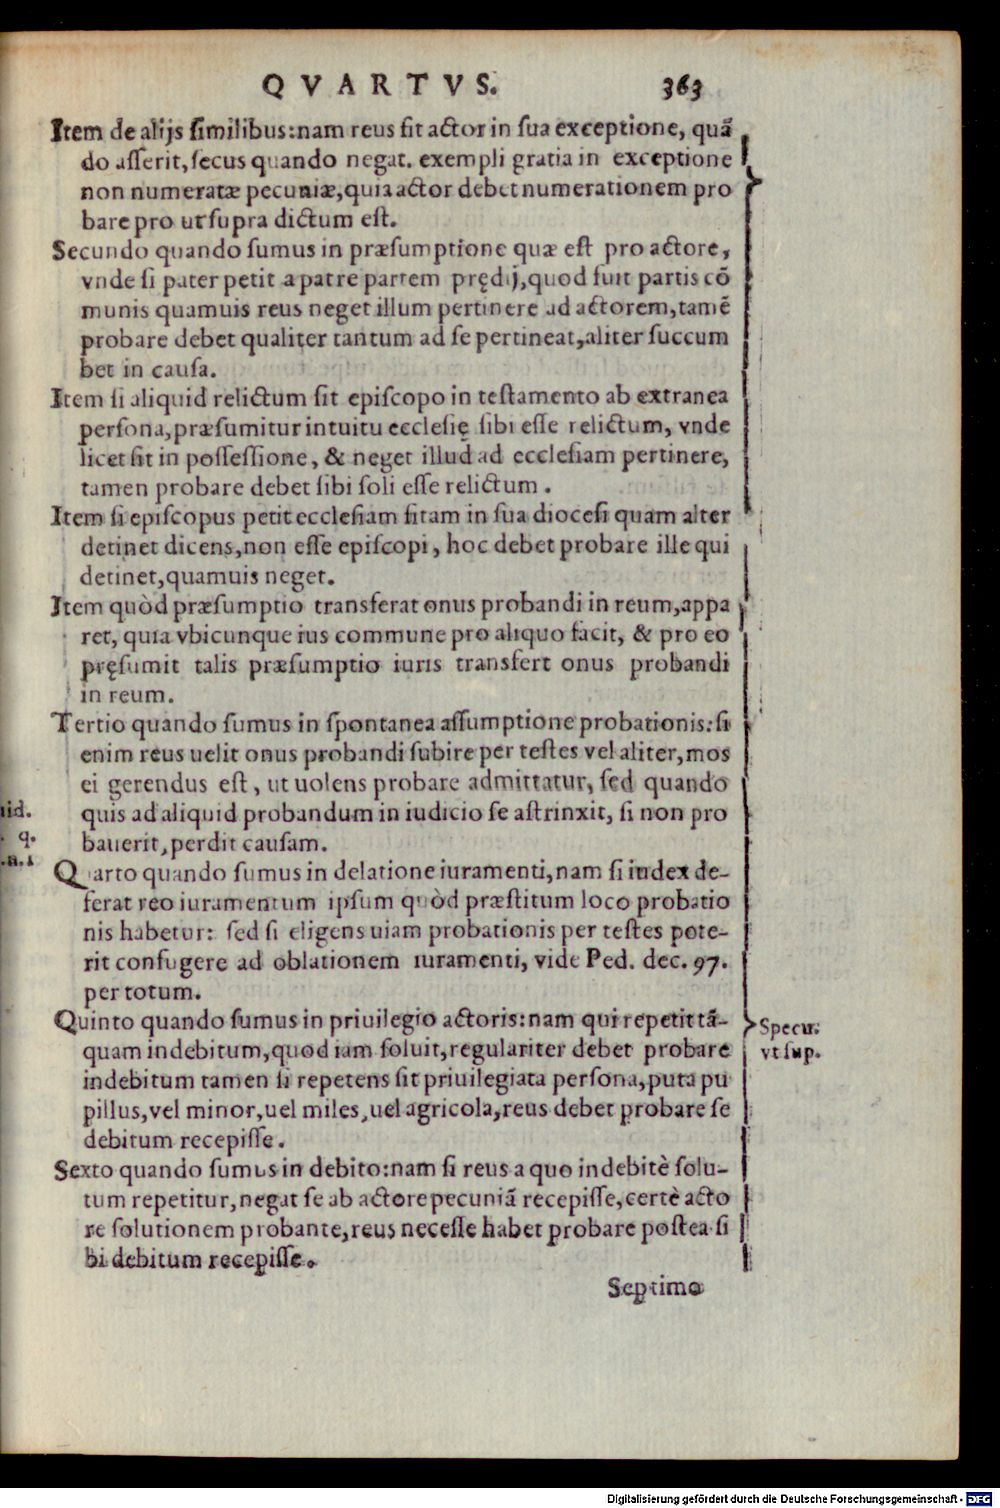 QVARTVS. 363
Item de alijs similibus: nam reus fit actor in sua exceptione, quã
do asserit, secus quando negat. exempli gratia in exceptione
non numeratæ pecuniæ, quia actor debet numerationem pro
bare pro ut supra dictum est.
Secundo quando sumus in præsumptione quæ est pro actore,
vnde si pater petit a patre partem prędij, quod fuit partis cõ
munis quamuis reus neget illum pertinere ad actorem, tamẽ
probare debet qualiter tantum ad se pertineat, aliter succum
bet in causa.
Item si aliquid relictum sit episcopo in testamento ab extranea
persona, præsumitur intuitu ecclesię sibi esse relictum, vnde
licet sit in possessione, & neget illud ad ecclesiam pertinere,
tamen probare debet sibi soli esse relictum.
Item si episcopus petit ecclesiam sitam in sua diocesi quam alter
detinet dicens, non esse episcopi, hoc debet probare ille qui
detinet, quamuis neget.
Item quòd præsumptio transferat onus probandi in reum, appa
ret, quia vbicunque ius commune pro aliquo facit, & pro eo
pręsumit talis præsumptio iuris transfert onus probandi
in reum.
Tertio quando sumus in spontanea assumptione probationis: si
enim reus uelit onus probandi subire per testes vel aliter, mos
ei gerendus est, ut uolens probare admittatur, sed quando
quis ad aliquid probandum in iudicio se astrinxit, si non pro
bauerit, perdit causam.
Quarto quando sumus in delatione iuramenti, nam si iudex de-
ferat reo iuramentum ipsum quòd præstitum loco probatio
nis habetur: sed si eligens uiam probationis per testes pote-
rit confugere ad oblationem iuramenti, vide Ped. dec. 97.
per totum.
Quinto quando sumus in priuilegio actoris: nam qui repetit tã-
quam indebitum, quod iam soluit, regulariter debet probare
indebitum tamen si repetens sit priuilegiata persona, puta pu
pillus, vel minor, uel miles, uel agricola, reus debet probare se
debitum recepisse.
Specu.
vt sup.
Sexto quando sumus in debito: nam si reus a quo indebitè solu-
tum repetitur, negat se ab actore pecuniã recepisse, certè acto
re solutionem probante, reus necesse habet probare postea si
bi debitum recepisse.
Septimo
iid.
q.
.n.1
Digitalisierung gefördert durch die Deutsche Forschungsgemeinschaft - DFG